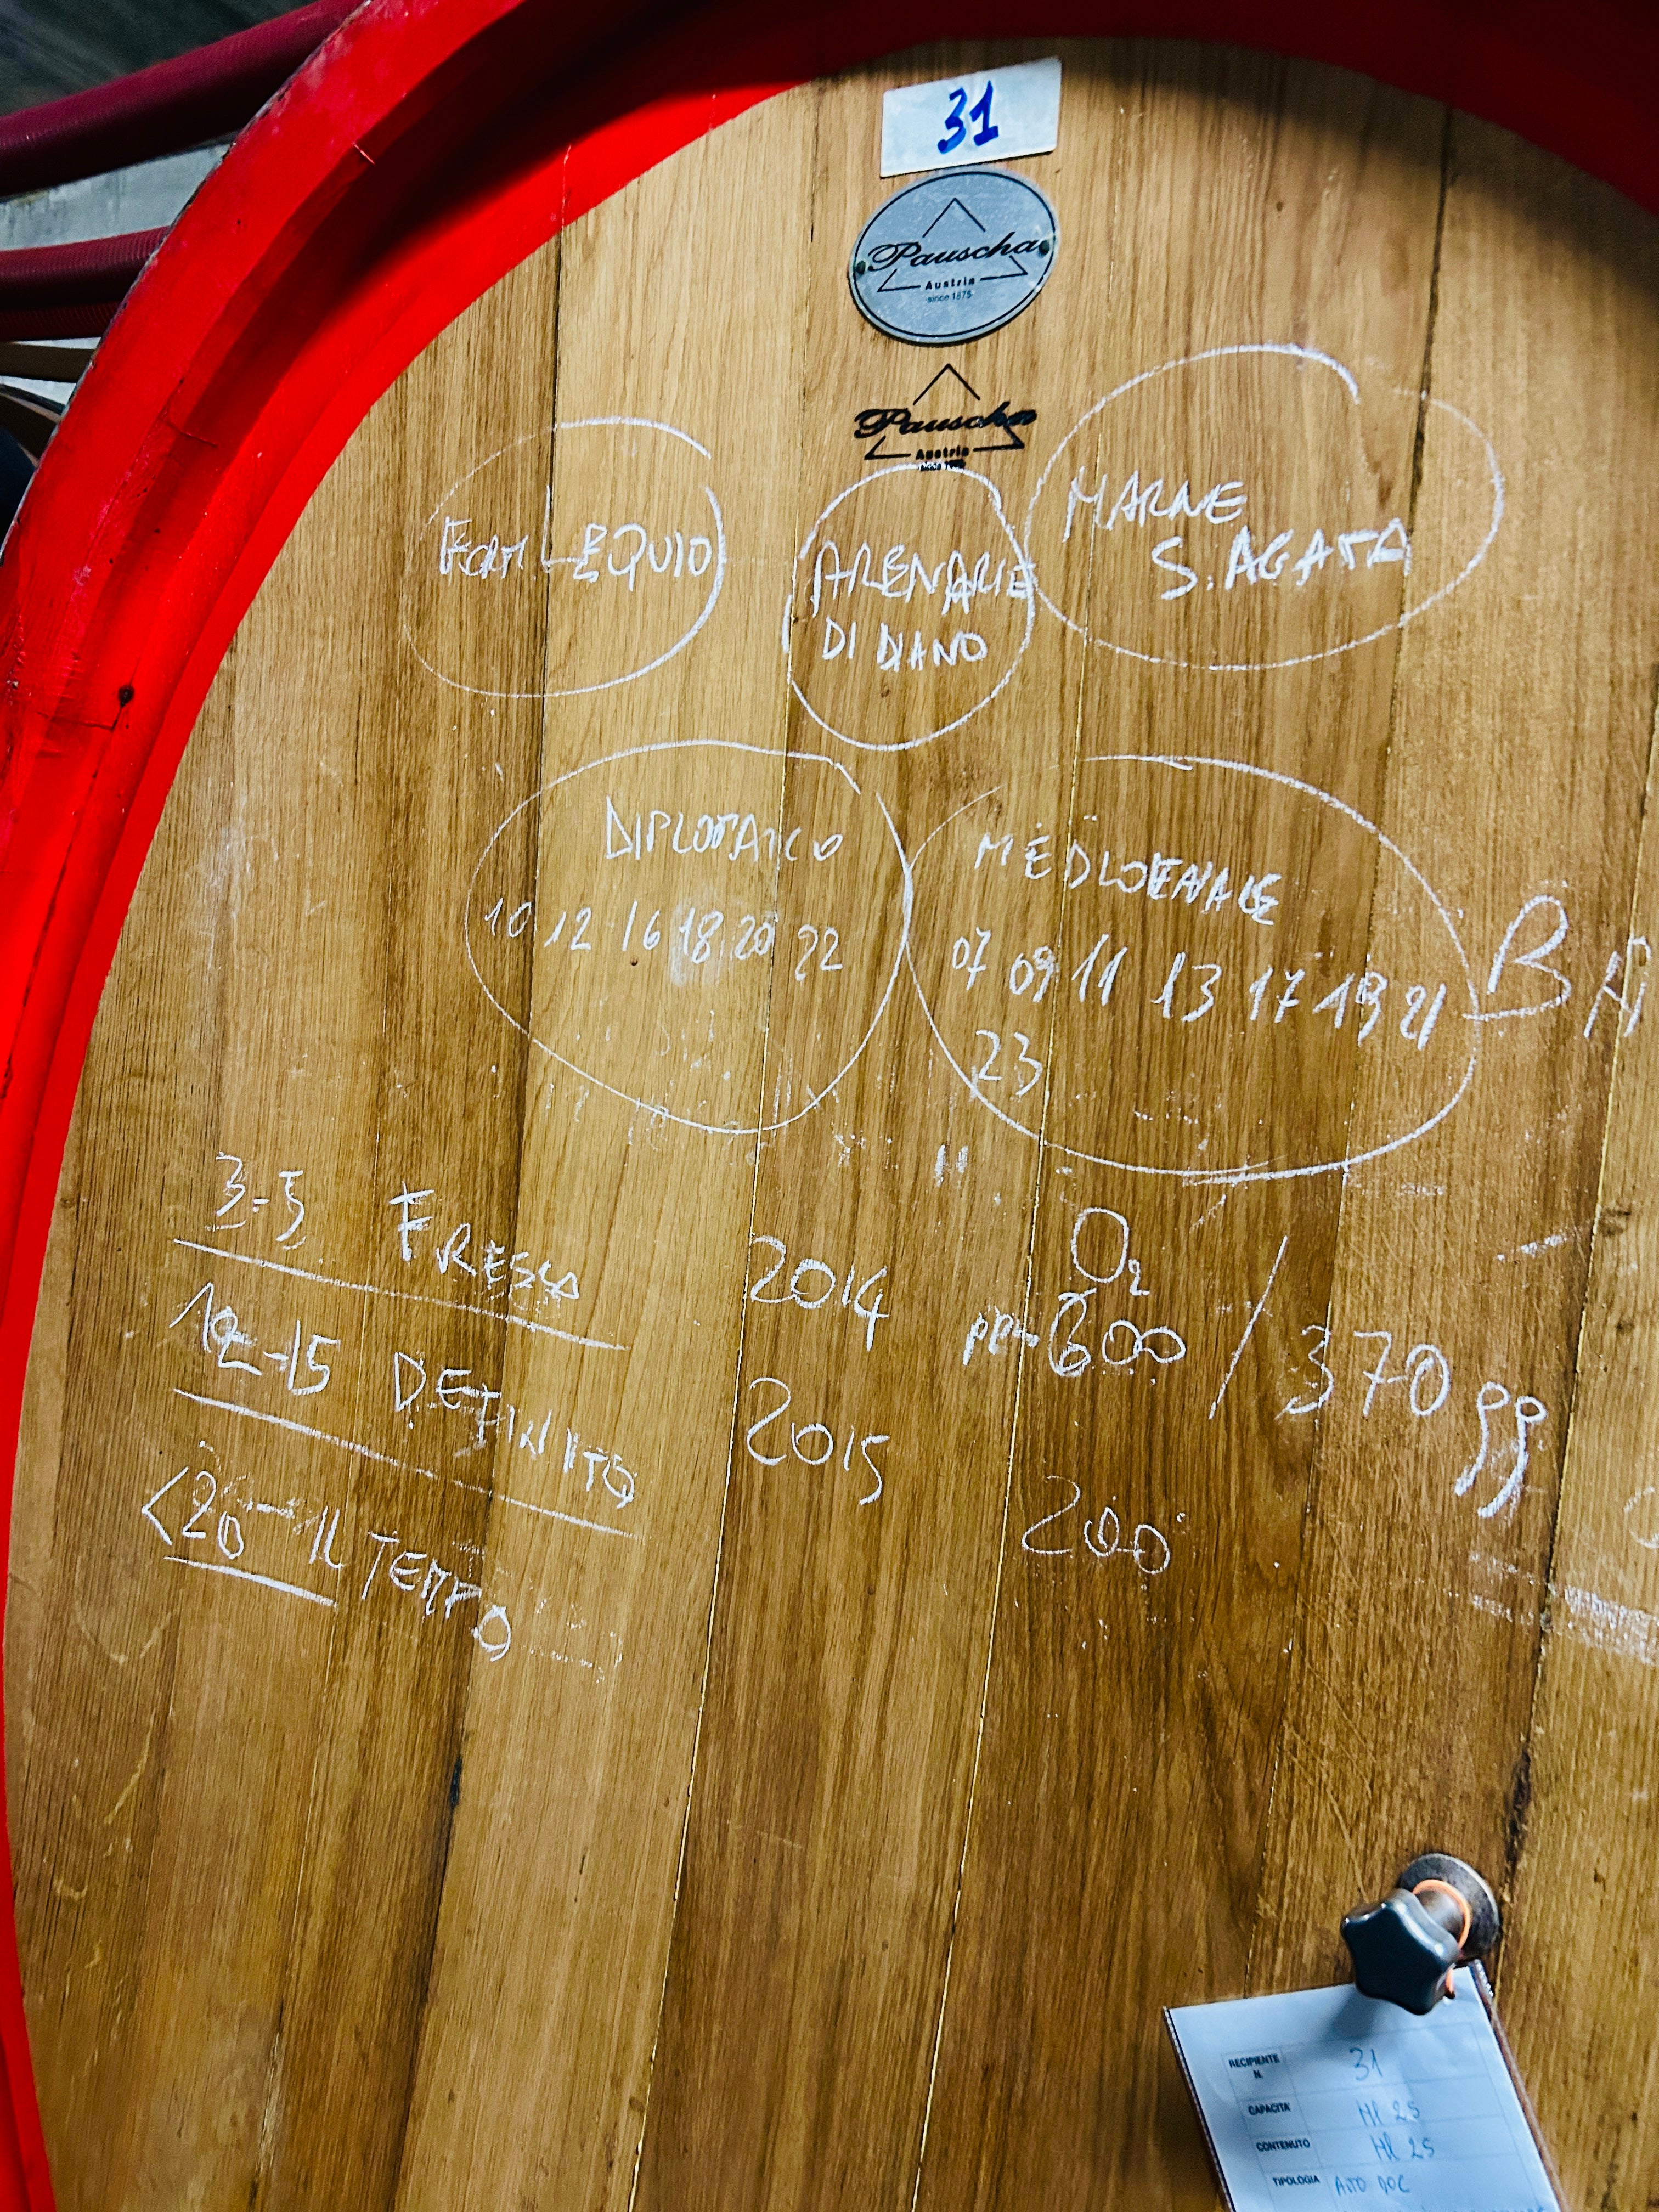 31
Pauscha
Austria
since 1875
Pauscha
Austria
FORM. LEQUIO
ARENARIE
DI DIANO
MARNE
S. AGATA
10 12 16 18 20 22
07 09 11 13 17 19 21
23
BA
3-5 FRESCO
2014
O2
600 / 370 gg
DEFINITO
2015
<20 IL TEMPO
200
RECIPIENTE
N.
31
CAPACITA'
Hl 25
CONTENUTO
Hl 25
TIPOLOGIA
ATTO DOC